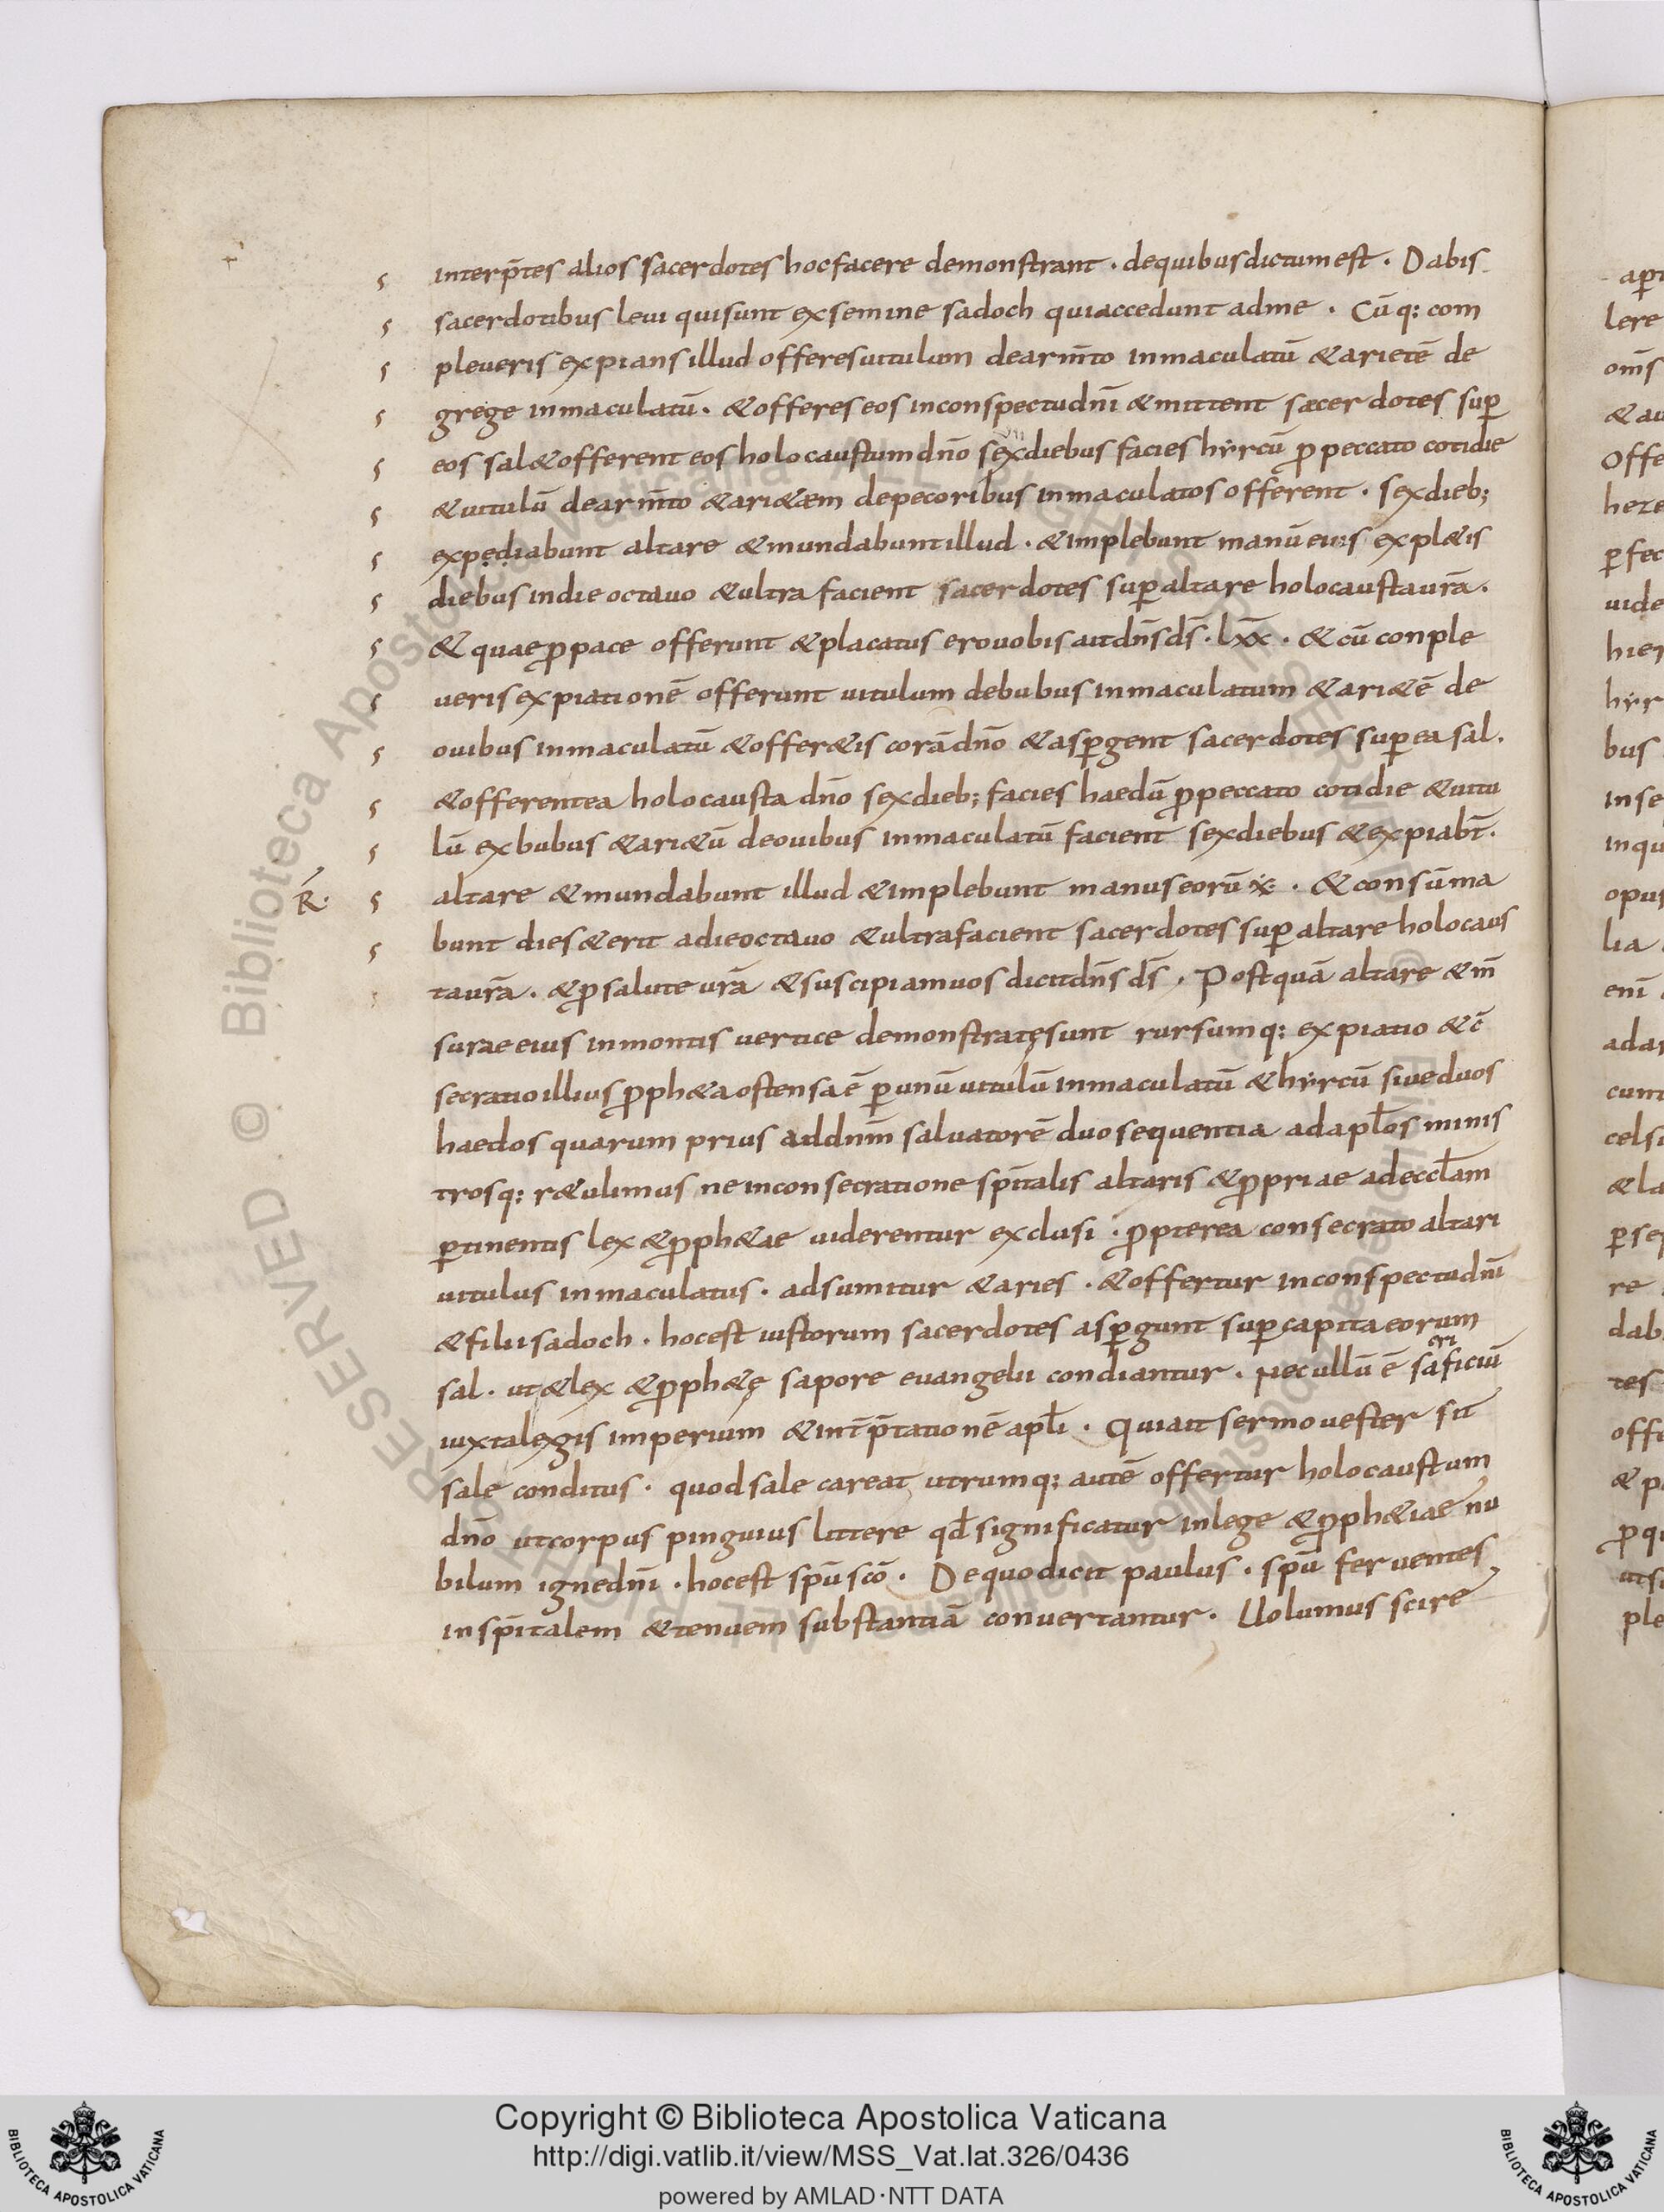 interp̄tes alios sacerdotes hoc facere demonstrant · de quibus dictum est · Dabis
sacerdotibus leui qui sunt ex semine sadoch qui accedunt ad me · Cū q: com
pleueris expians illud offeres uitulum de arm̄to inmaculatū & arietē de
grege inmaculatū · & offeres eos in conspectu dn̄i & mittent sacerdotes sup̱
eos sal & offerent eos holocaustum dn̄o sex diebus facies hyrcū ꝓ peccato cotidie
& uitulū de arm̄to & ari&em de pecoribus inmaculatos offerent · sex dieb;
expediabunt altare & mundabunt illud · & implebunt manū eius expl&is
diebus in die octauo & ultra facient sacerdotes suꝑ altare holocausta ur̄a ·
& quae ꝓ pace offerunt & placatus ero uobis ait dn̄s ds̄ · lxx · & cū conple
ueris expiationē offerunt uitulum de bubus inmaculatum & ari&ē de
ouibus inmaculatū & offer&is corā dn̄o & asꝑgent sacerdotes suꝑ ea sal ·
& offerent ea holocausta dn̄o sex dieb; facies haedū ꝓ peccato cotidie & uitu
lū ex bubus & ari&ū de ouibus inmaculatū facient sex diebus & expiabt̄ ·
R̄ · altare & mundabunt illud & implebunt manus eorū · & consūma
bunt dies & erit a die octauo & ultra facient sacerdotes suꝑ altare holocaus
ta ur̄a · & ꝓ salute ur̄a & suscipiam uos dicit dn̄s ds̄ · Postquā altare & m̄
surae eius in montis uertice demonstratę sunt rursumq: expiatio & c̄
secratio illius ꝓph&a ostensa ē ꝑ unū uitulū inmaculatū & hyrcū siue duos
haedos quarum prius ad dnm̄ saluatorē duo sequentia ad apl̄os minis
trosq: r&ulimus ne in consecratione sp̄italis altaris & ꝓpriae ad eccl̄am
ꝑtinentis lex & ꝓph&ae uiderentur exclusi · ꝓpterea consecrato altari
uitulus inmaculatus · adsumitur & aries · & offertur in conspectu dn̄i
& filii sadoch · hoc est iustorum sacerdotes asꝑgunt suꝑ capita eorum
sal · ut & lex & ꝓph&ę sapore euangelii condiantur · Nec ullū ē sacrificiū
iuxta legis imperium & int̄p̄tationē apl̄i · Qui ait sermo uester sit
sale conditus · quod sale careat utrumq: autē offertur holocaustum
dn̄o ut corpus pinguius littere qd̄ significatur in lege & ꝓph&iae nu
bilum igne dn̄i · hoc est sp̄u sc̄o · De quo dicit paulus · sp̄u feruentes
in sp̄italem & tenuem substantiā conuertantur · Uolumus scire
Copyright © Biblioteca Apostolica Vaticana
http://digi.vatlib.it/view/MSS_Vat.lat.326/0436
powered by AMLAD·NTT DATA